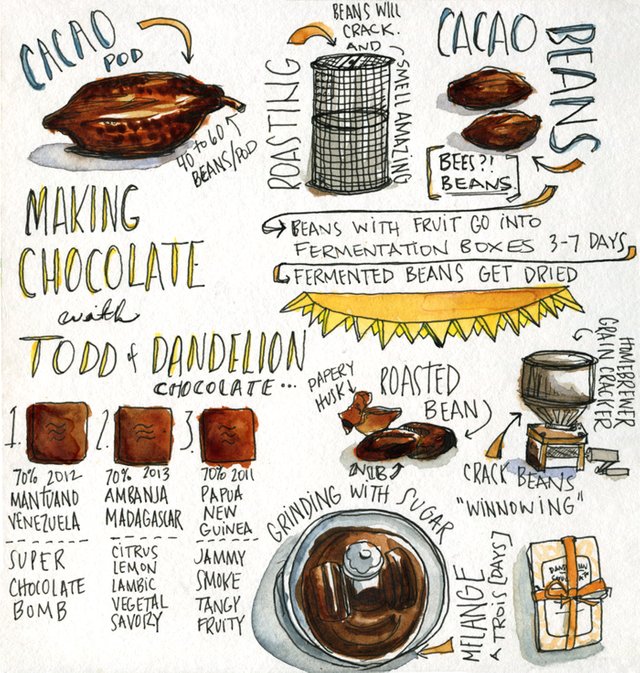 CACAO
POD
40 TO 60
BEANS/POD
ROASTING
BEANS WILL
CRACK AND
SMELL AMAZING
CACAO
BEANS
BEES?!
BEANS
MAKING
CHOCOLATE
with
TODD of DANDELION
CHOCOLATE...
BEANS WITH FRUIT GO INTO
FERMENTATION BOXES 3-7 DAYS
FERMENTED BEANS GET DRIED
1.
70% 2012
MANTUANO
VENEZUELA
SUPER
CHOCOLATE
BOMB
2.
70% 2013
AMBANJA
MADAGASCAR
CITRUS
LEMON
LAMBIC
VEGETAL
SAVORY
3.
70% 2011
PAPUA
NEW
GUINEA
JAMMY
SMOKE
TANGY
FRUITY
PAPERY
HUSK
ROASTED
BEAN
NIB
HOMEBREWER
GRAIN CRACKER
CRACK BEANS
"WINNOWING"
GRINDING WITH SUGAR
MELANGE
A TROIS [DAYS]